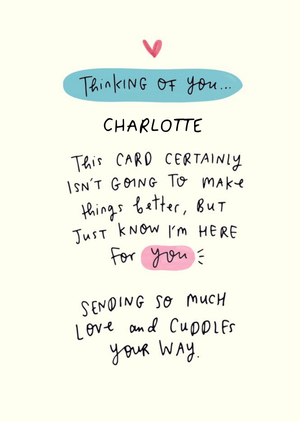 Thinking of you...
CHARLOTTE
This CARD CERTAINLY
ISN'T GOING TO MAKE
things better, BUT
JUST KNOW I'M HERE
for you
SENDING SO MUCH
LOVE and CUDDLES
your WAY.